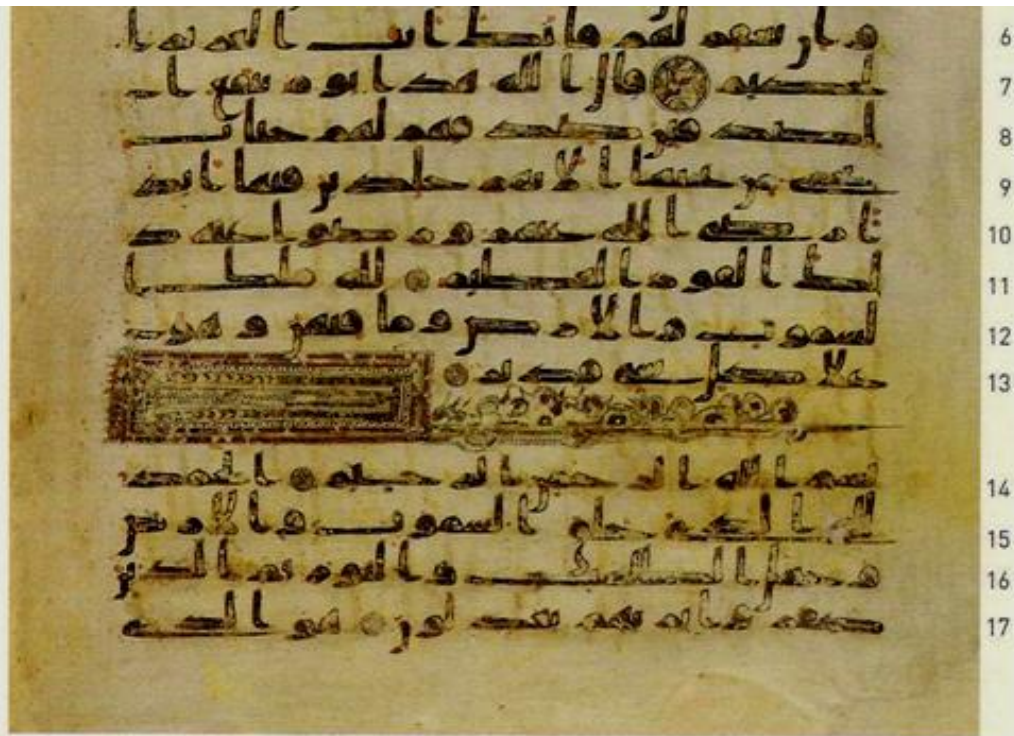 وان تغفر لهم فانك انت العزيز ا 6
لحكيم قال الله هذا يوم ينفع ا 7
لصدقين صدقهم لهم جنت 8
تجري من تحتها الانهر خلدين فيها ابد 9
ا رضي الله عنهم ورضوا عنه ذ 10
لك الفوز العظيم لله ملك ا 11
لسموت والارض وما فيهن وهو 12
على كل شي قدير 13
بسم الله الرحمن الرحيم الحمد 14
لله الذي خلق السموت والارض 15
وجعل الظلمت والنور ثم الذين 16
كفروا بربهم يعدلون هو الذي 17